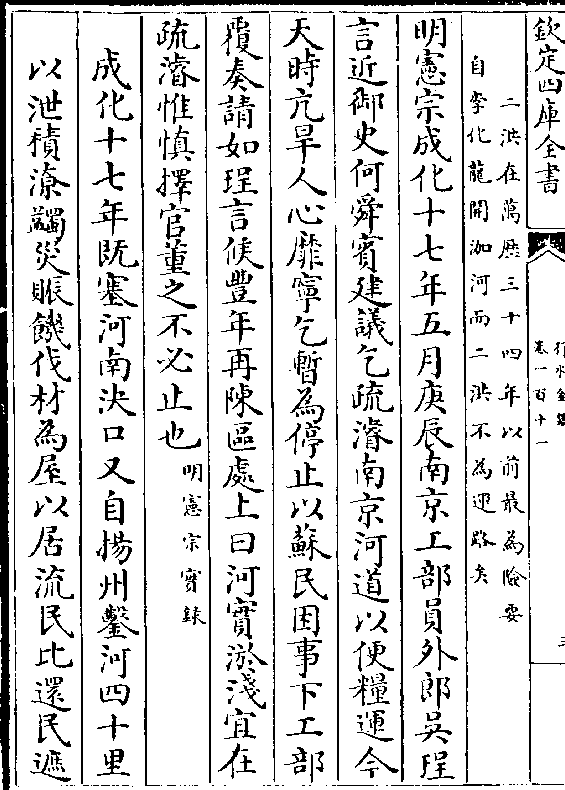 欽定四庫全書
行水金鑑
卷一百十一
二洪在萬厯三十四年以前最為險要
自李化龍開泇河而二洪不為運路矣
明憲宗成化十七年五月庚辰南京工部員外郎吳珵
言近御史何舜賓建議乞疏濬南京河道以便糧運今
天時亢旱人心靡寧乞暫為停止以蘇民困事下工部
覆奏請如珵言候豐年再陳區處上曰河實淤淺宜在
疏濬惟慎擇官董之不必止也
明憲宗實錄
成化十七年既塞河南決口又自揚州鑿河四十里
以泄積潦蠲災賑饑伐材為屋以居流民比還民遮